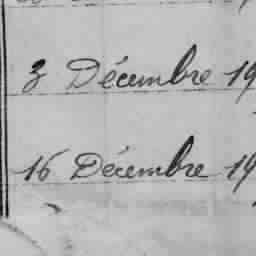 3 Décembre 19
16 Décembre 19